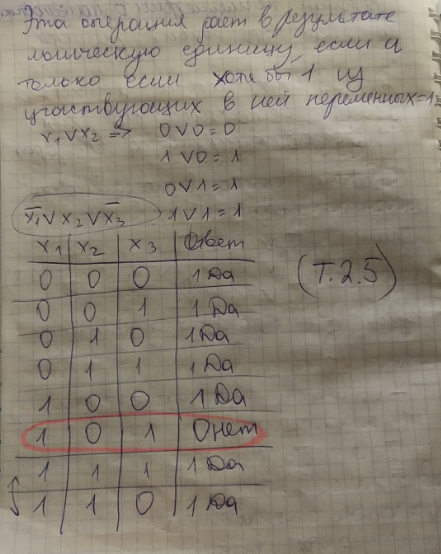 Эта операция дает в результате
логическую единицу, если и
только если хотя бы 1 из
участвующих в ней переменных=1.
x₁∨x₂ => 0∨0=0
1∨0=1
0∨1=1
1∨1=1
x̄₁∨x₂∨x̄₃
x₁ x₂ x₃ Ответ
0 0 0 1 Да
0 0 1 1 Да
0 1 0 1 Да
0 1 1 1 Да
1 0 0 1 Да
1 0 1 0 нет
1 1 1 1 Да
1 1 0 1 Да
(Т.2.5)